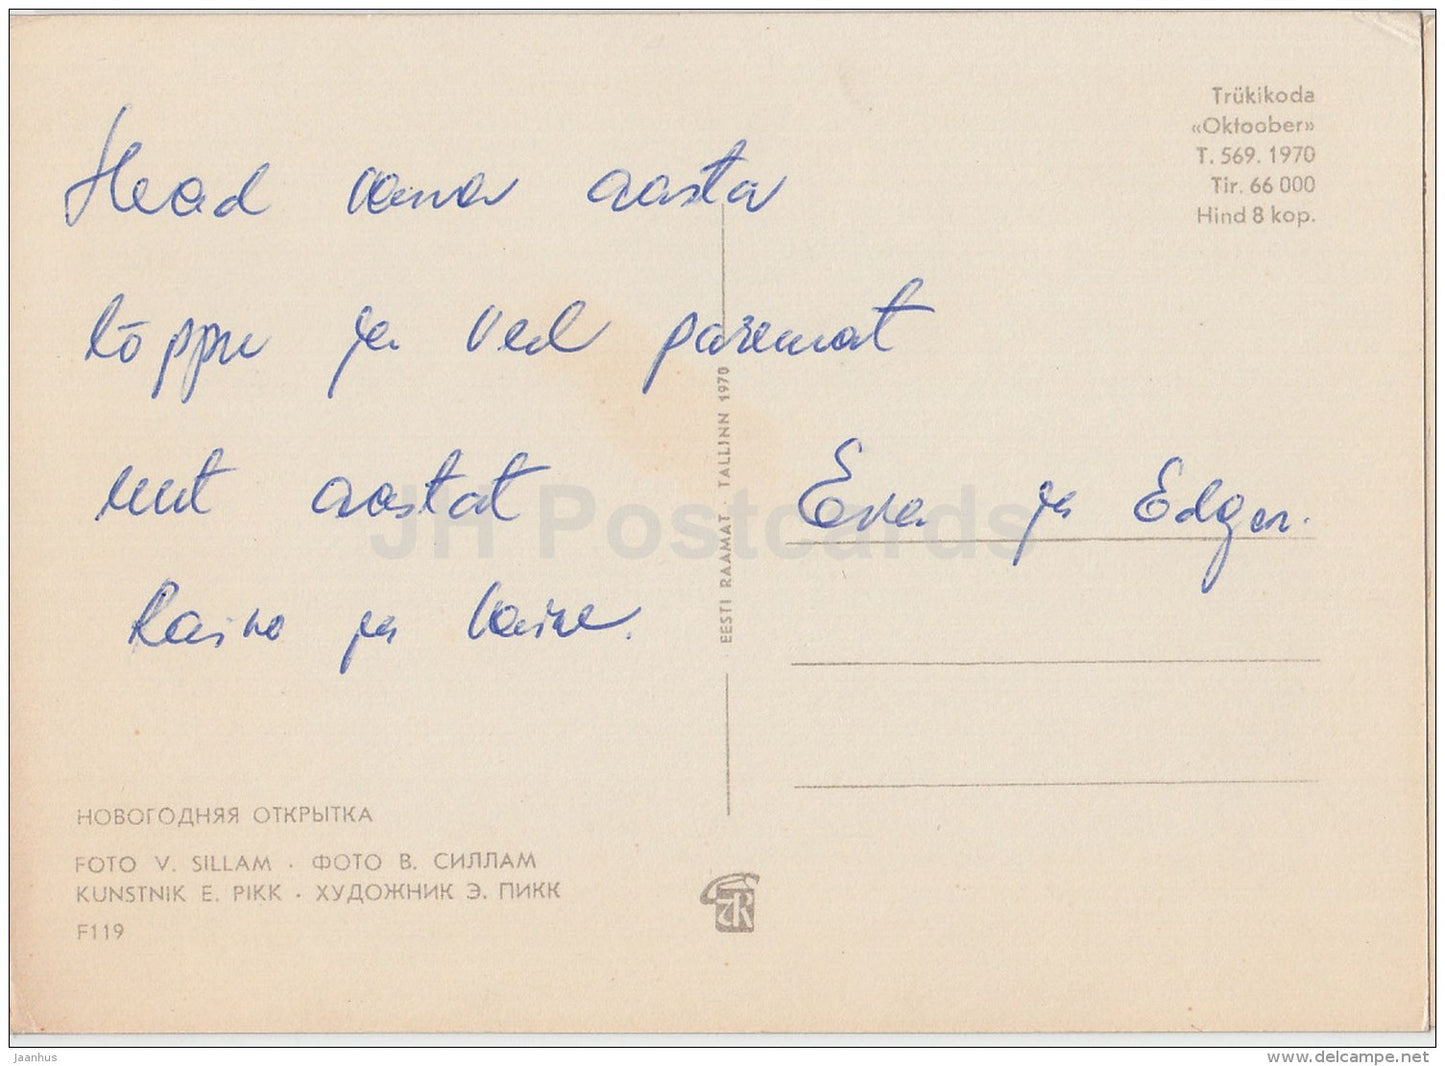 Head vana aasta
lõppu ja veel paremat
uut aastat
ja
Eva ja Edgar.
Trükikoda
«Oktoober»
T. 569. 1970
Tir. 66 000
Hind 8 kop.
EESTI RAAMAT · TALLINN 1970
JH Postcards
НОВОГОДНЯЯ ОТКРЫТКА
FOTO V. SILLAM · ФОТО В. СИЛЛАМ
KUNSTNIK E. PIKK · ХУДОЖНИК Э. ПИКК
F119
jaanhus
www.delcampe.net